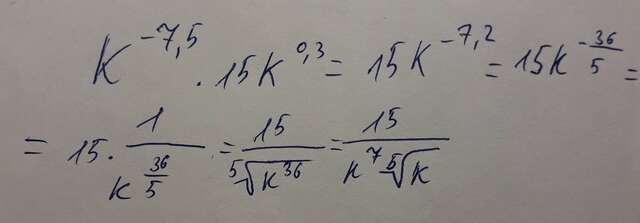 K^{-7,5} · 15K^{0,3} = 15K^{-7,2} = 15K^{-\frac{36}{5}} =
= 15 · \frac{1}{K^{\frac{36}{5}}} = \frac{15}{\sqrt[5]{K^{36}}} = \frac{15}{K^7 \sqrt[5]{K}}